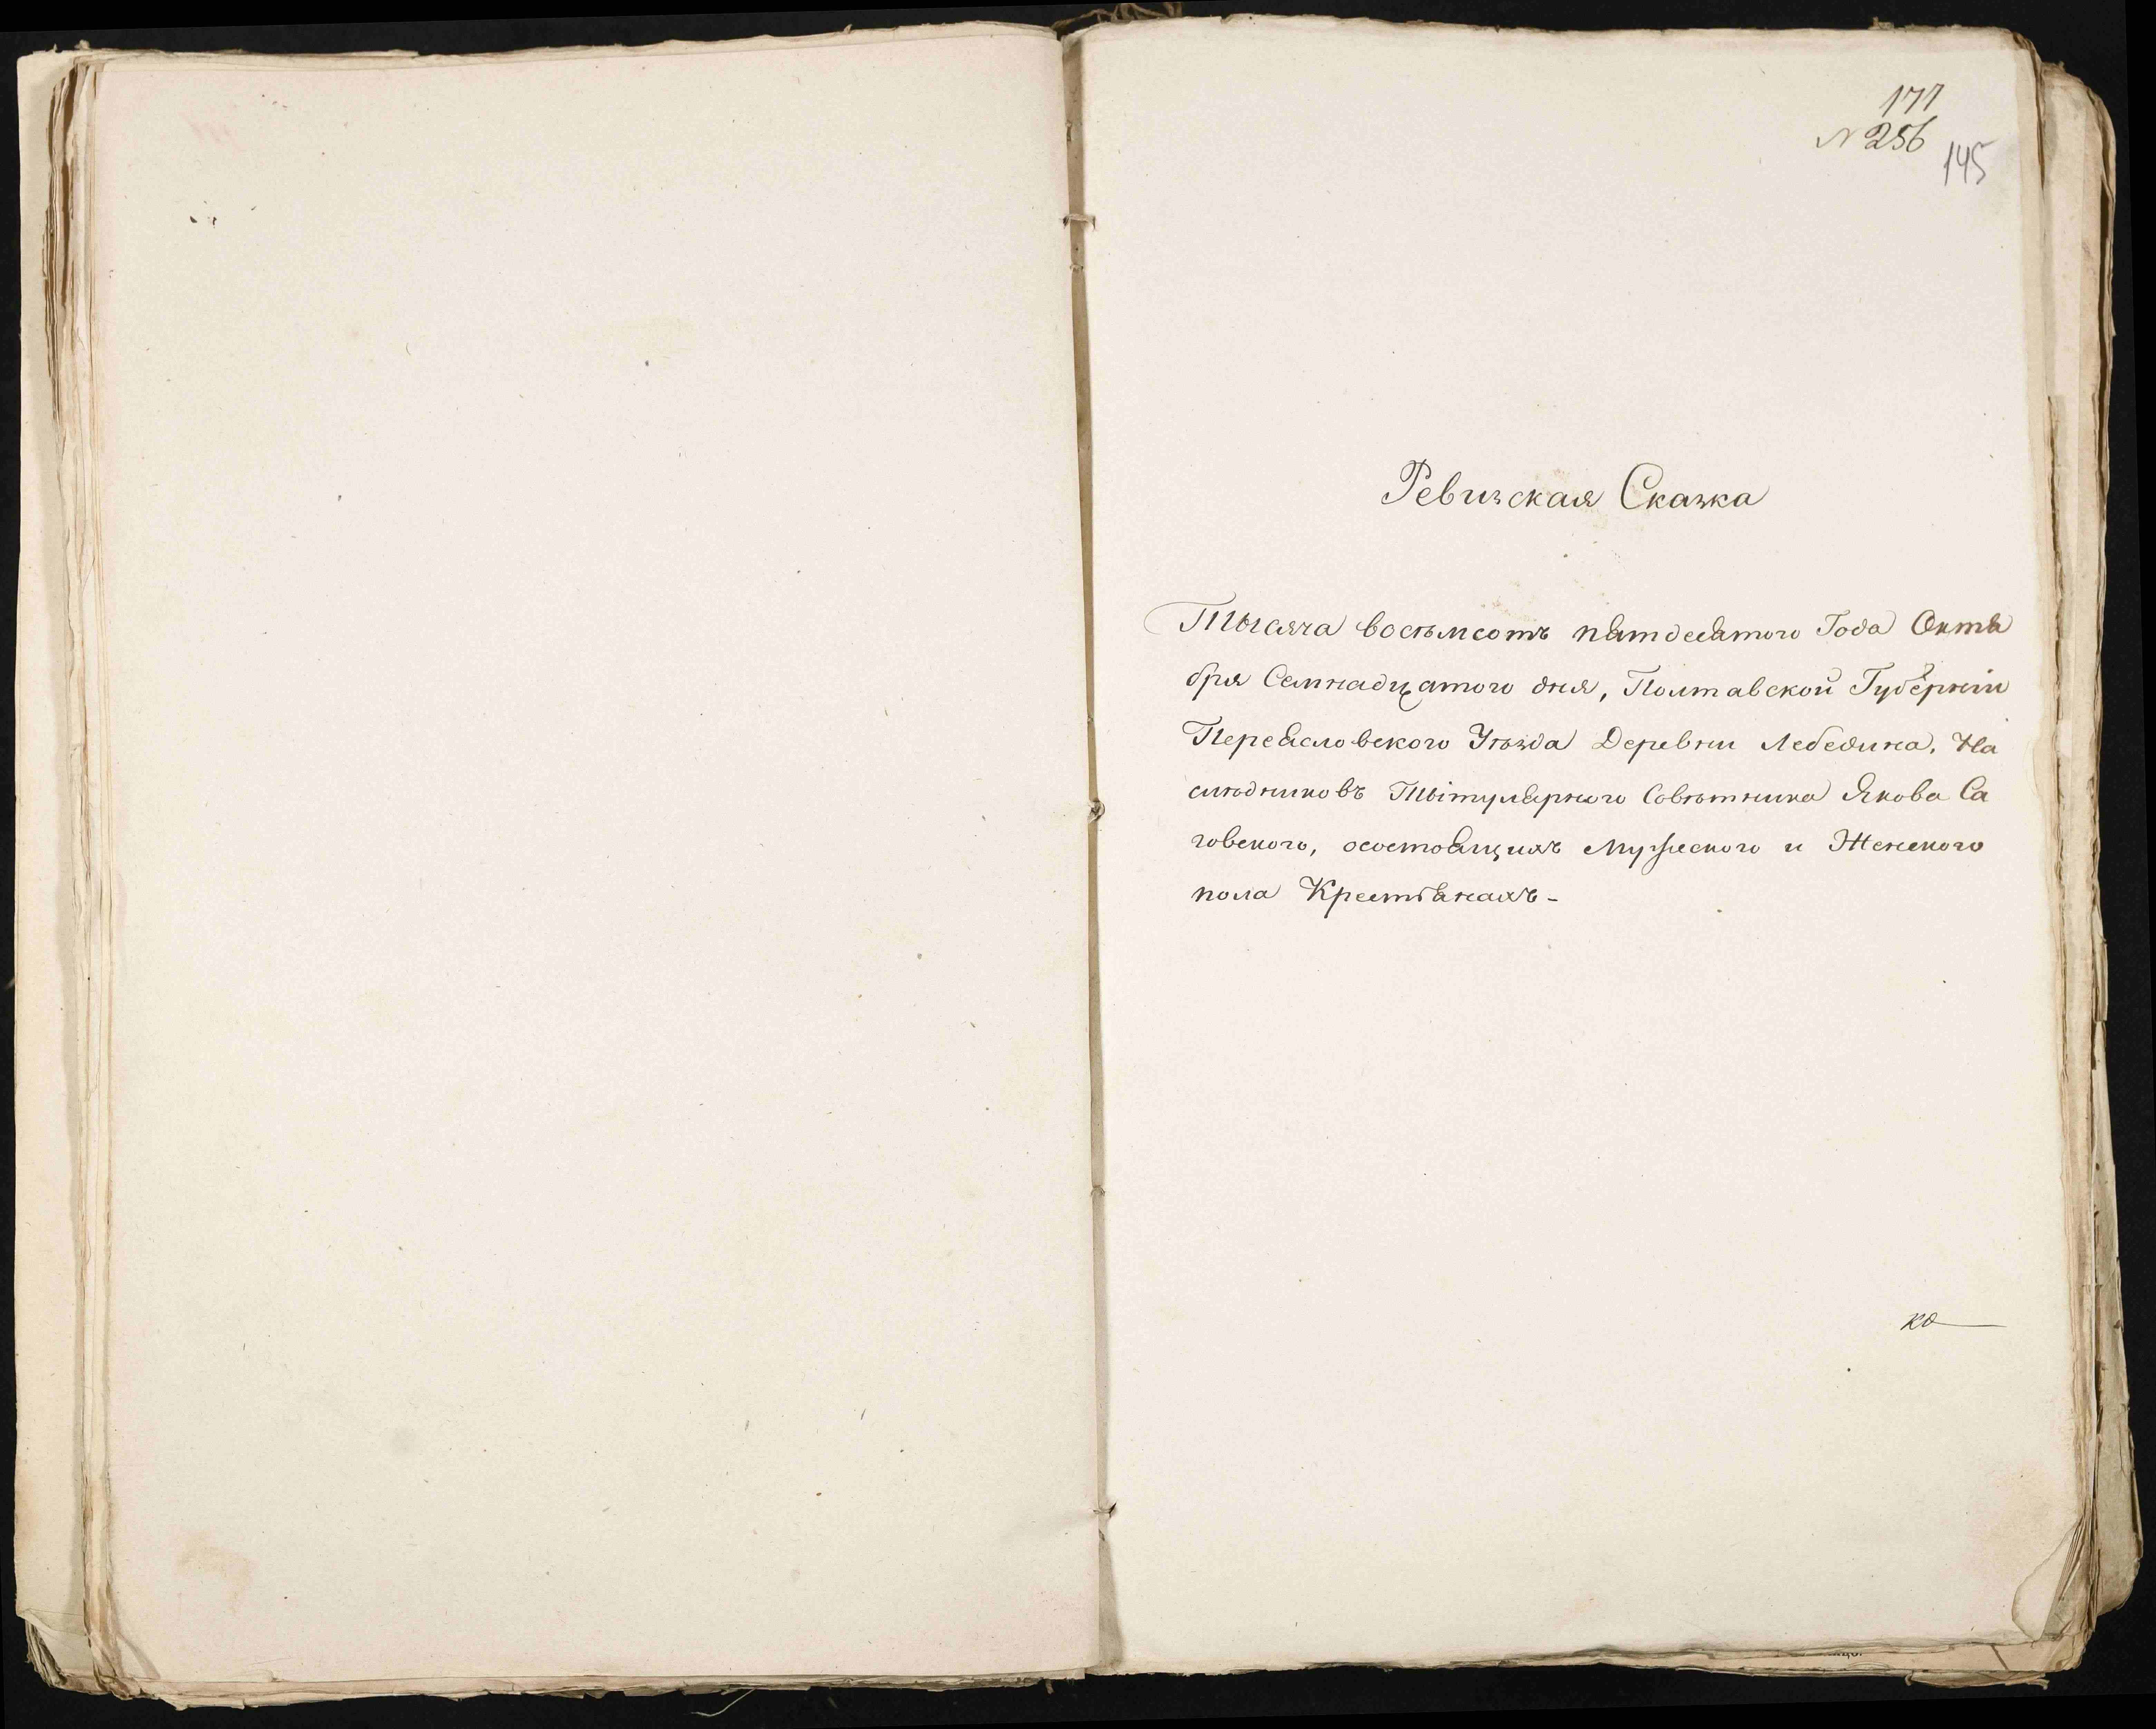 177
N 256
145
Ревизская Сказка
Тысяча восемьсотъ пятдесятого Года Октя
бря Семнадцатого дня, Полтавской Губерніи
Переясловского Уѣзда Деревни Лебедина, На
слѣдниковъ Тытулярного Совѣтника Якова Са
говского, осостоящихъ Мужеского и Женского
пола Крестьянахъ -